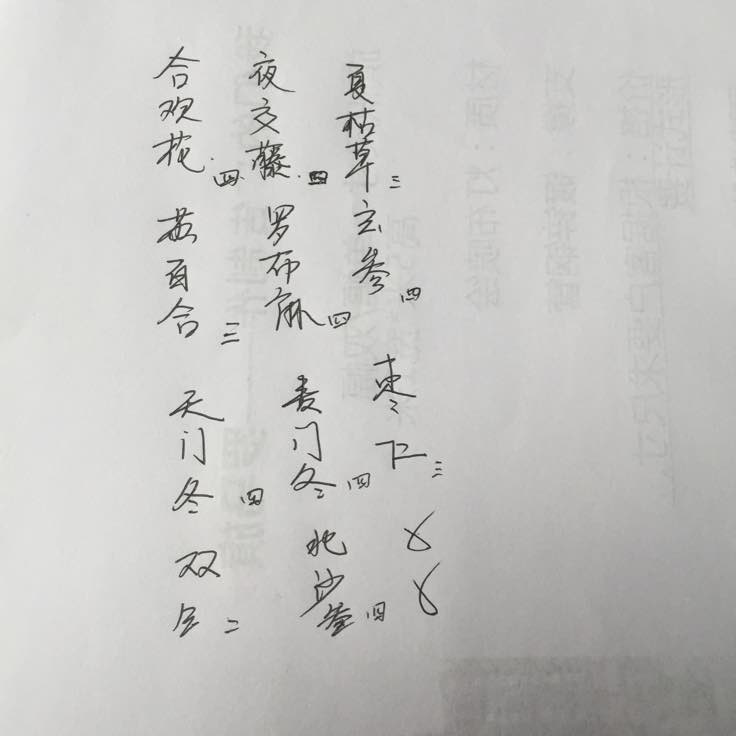 合欢花四
夜交藤四
夏枯草三
百合三
罗布麻四
玄参四
天门冬四
麦门冬四
枣仁三
双二
北沙参四